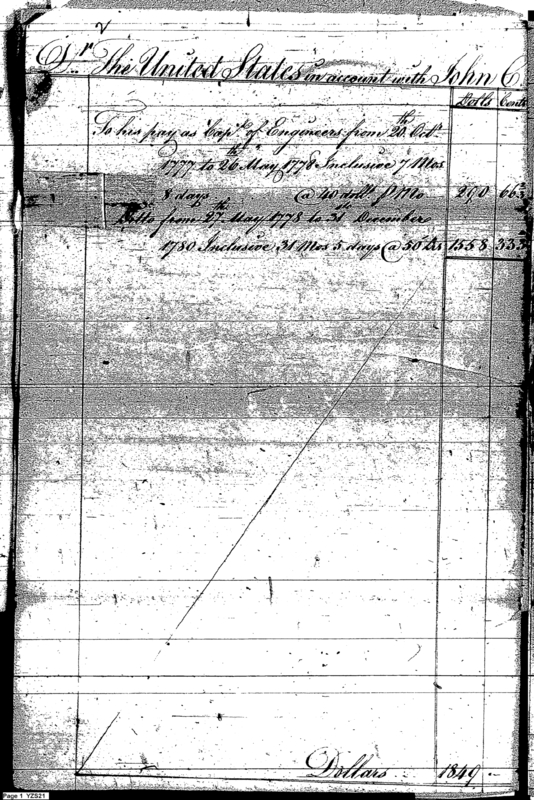 Dr. The United States in account with John C.
Dolls Cents
To his pay as Capt. of Engineers from 20th. Octr.
1777 to 26th May 1778 Inclusive 7 Mos
8 days @ 40 dolls p Mo 290 663
Ditto from 27th May 1778 to 31st December
1780 Inclusive 31 Mos 5 days @ 50 Ds 1558 333
Dollars 1849
Page 1 YZS21